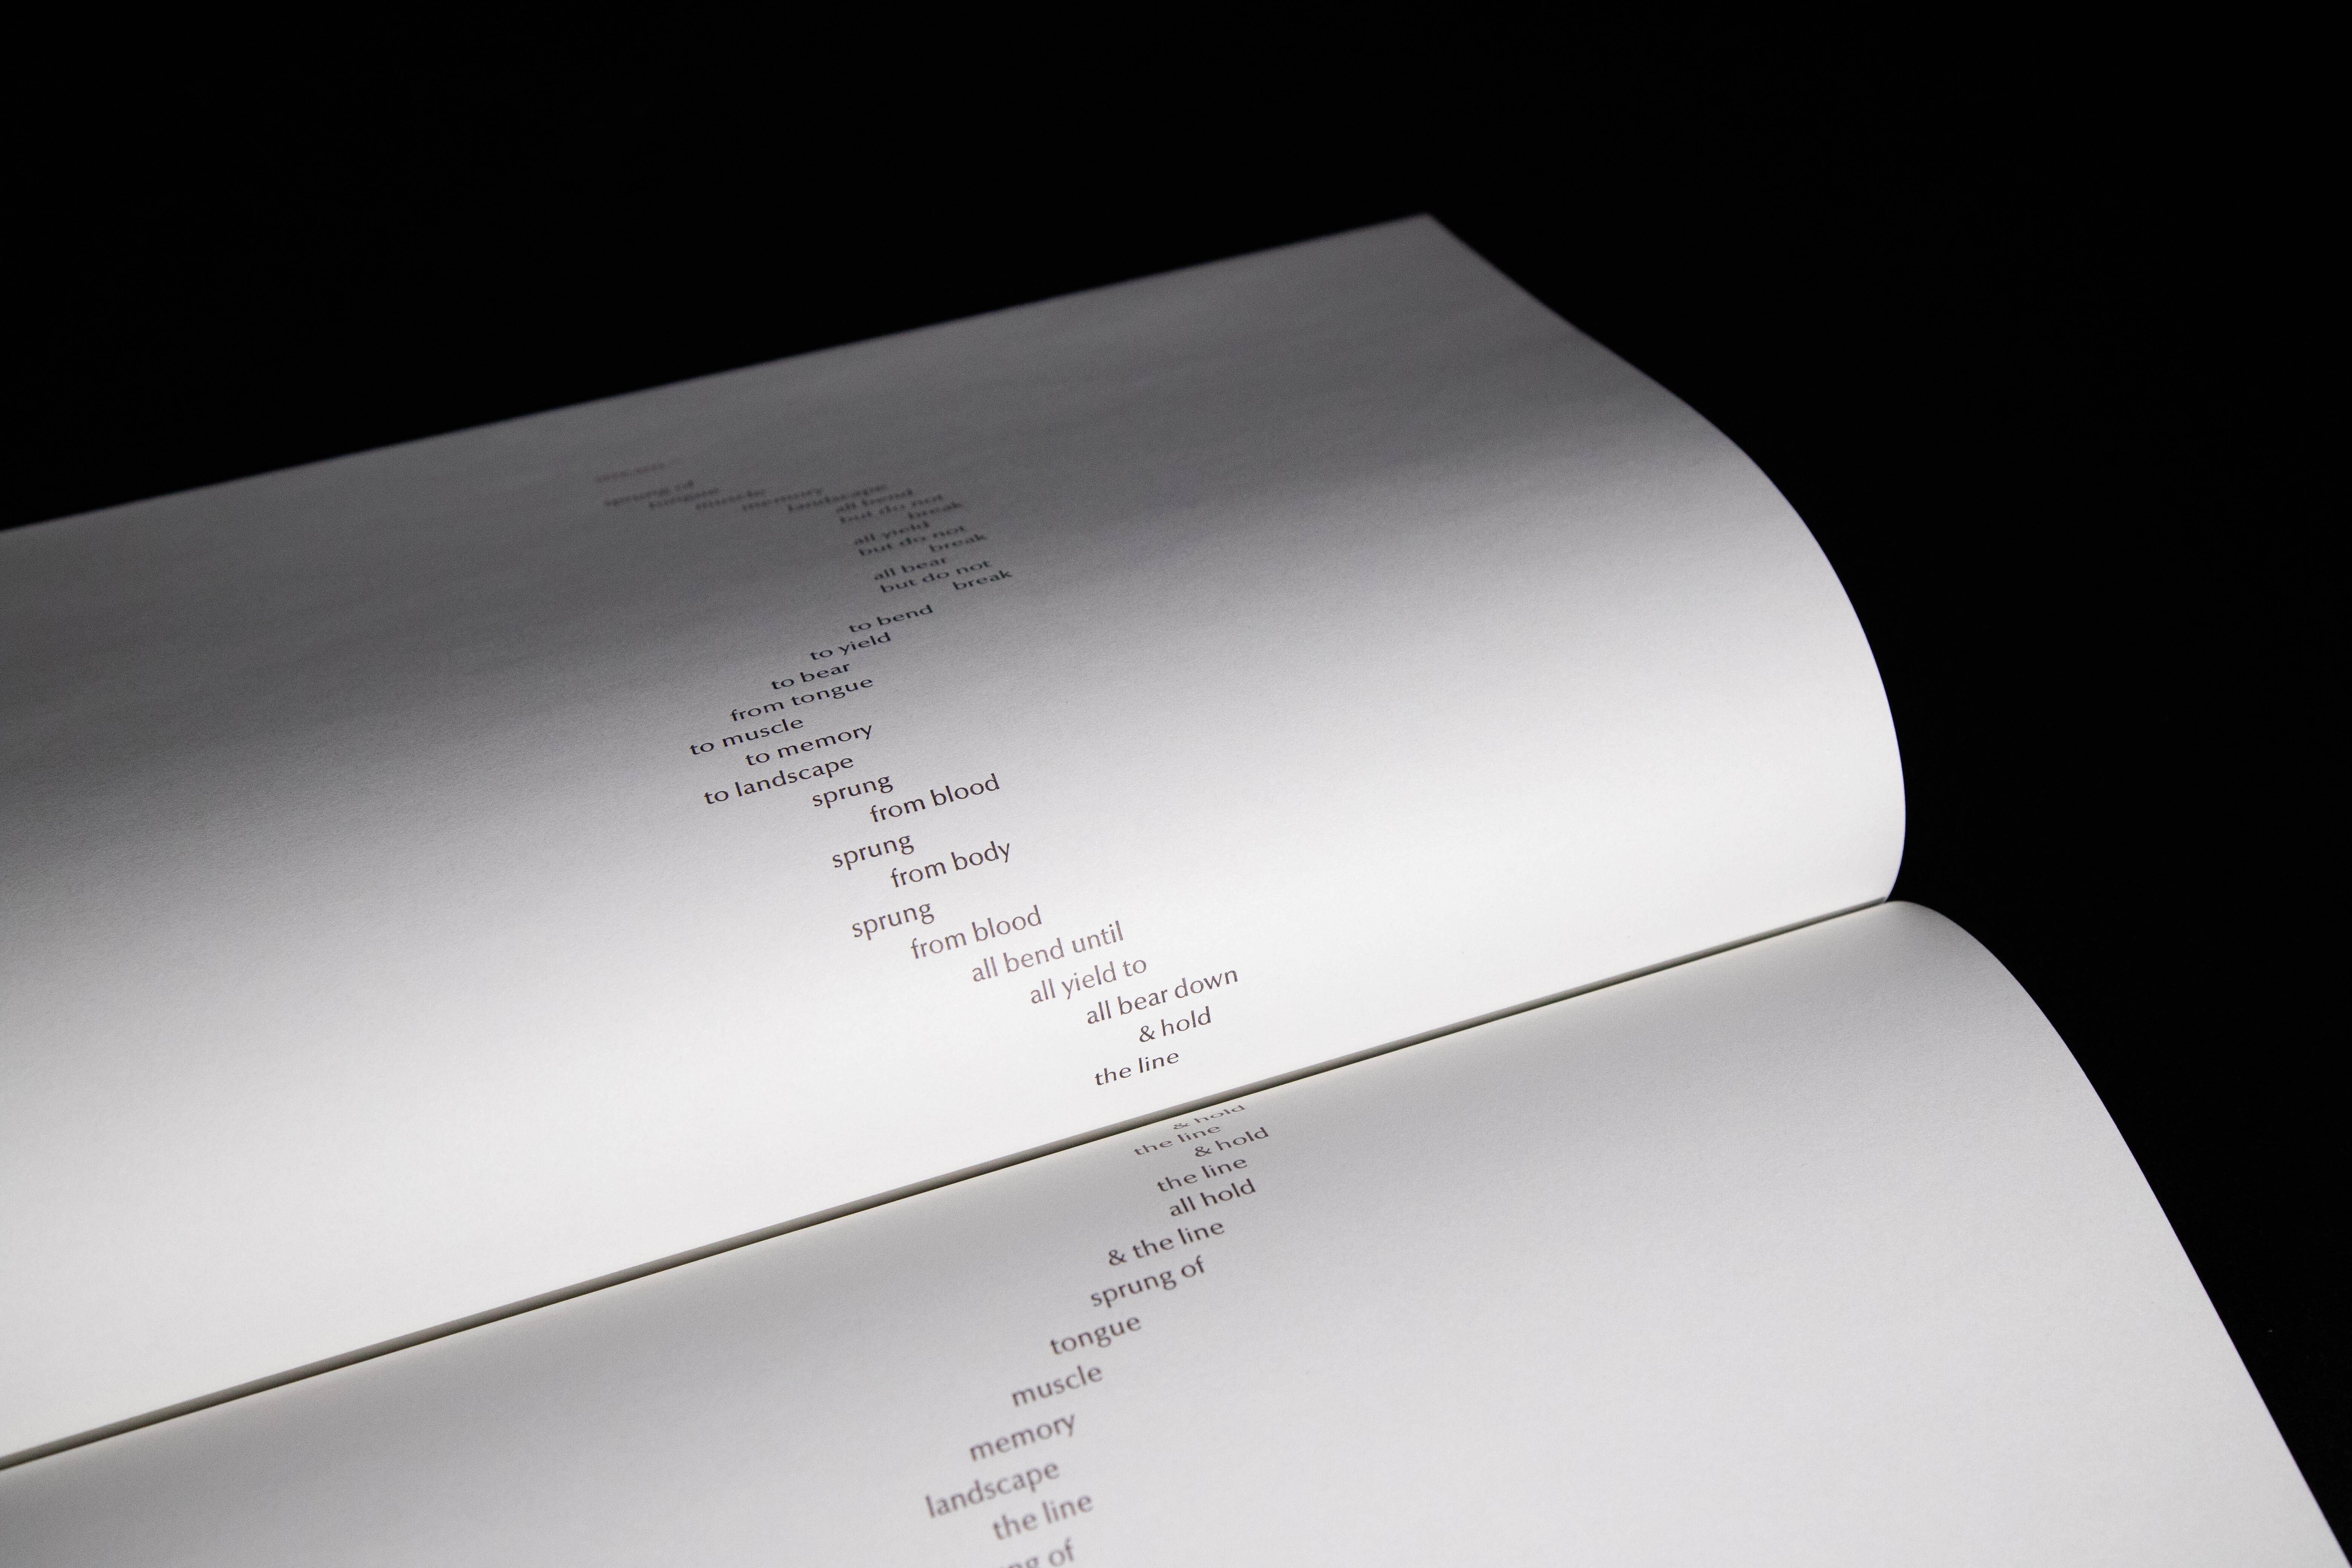 sprung of
tongue
muscle
memory
landscape
all bend
but do not
break
all yield
but do not
break
all bear
but do not
break
to bend
to yield
to bear
from tongue
to muscle
to memory
to landscape
sprung
from blood
sprung
from body
sprung
from blood
all bend until
all yield to
all bear down
& hold
the line
& hold
the line
& hold
the line
all hold
& the line
sprung of
tongue
muscle
memory
landscape
the line
of